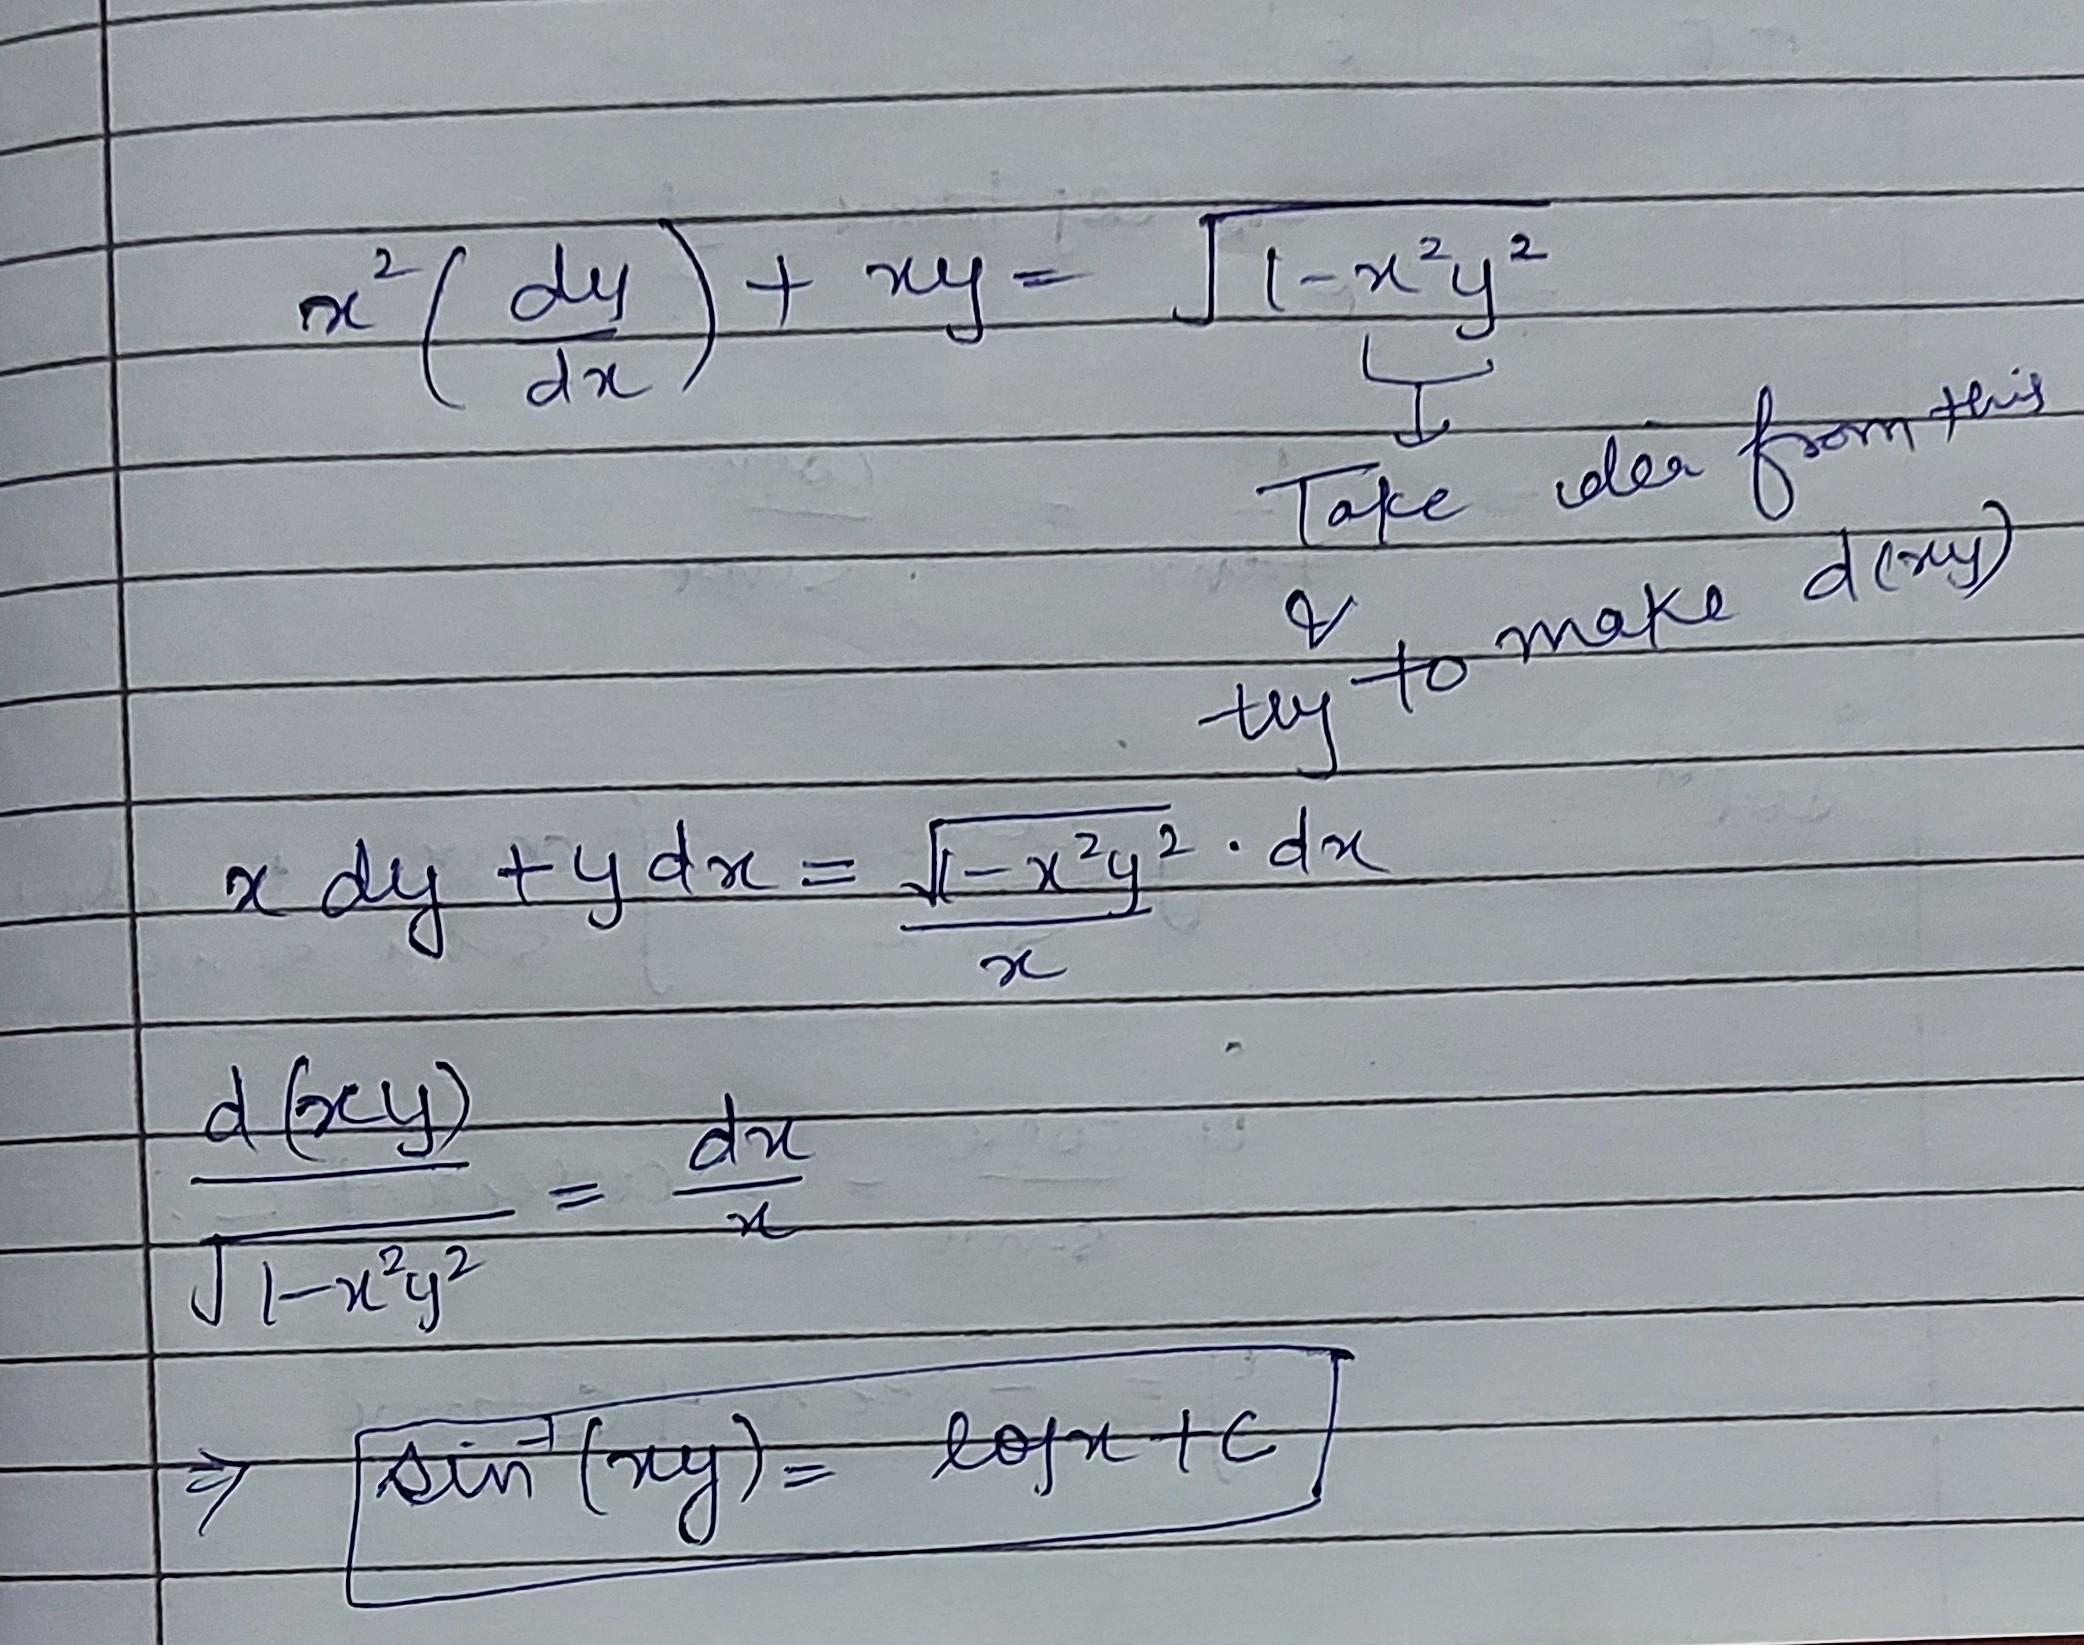 x²(dy/dx) + xy = √(1-x²y²)
Take idea from this
& try to make d(xy)
x dy + y dx = √(1-x²y²)/x · dx
d(xy)/√(1-x²y²) = dx/x
⇒ sin⁻¹(xy) = log x + C